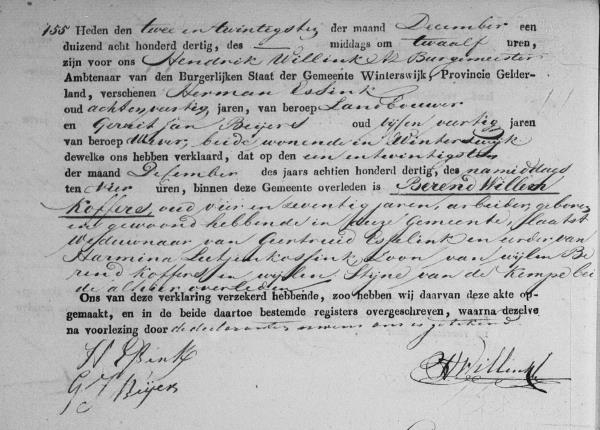 155 Heden den twee en twintigste der maand December een
duizend acht honderd dertig, des — middags om twaalf uren,
zijn voor ons Hendrik Willink Az Burgemeester
Ambtenaar van den Burgerlijken Staat der Gemeente Winterswijk, Provincie Gelder-
land, verschenen Herman Essink
oud achtenvartig jaren, van beroep Landbouwer
en Gerrit Jan Beijers oud vijfen vartig jaren
van beroep Wever, beide wonende in Winterswyk
dewelke ons hebben verklaard, dat op den een en twintigsten
der maand December des jaars achtien honderd dertig, des namiddags
ten vier uren, binnen deze Gemeente overleden is Berend Willem
Koffers, oud vier en zeventig jaren, arbeider, geboren
en gewoond hebbende in deze Gemeente, laatst
Weduwnaar van Geertruid Esselink en eerder van
Harmina Lutjenkossink, Zoon van wijlen Be
rend Koffers en wijlen Stijne van de Kempe bei
de alhier overleden
Ons van deze verklaring verzekerd hebbende, zoo hebben wij daarvan deze akte op-
gemaakt, en in de beide daartoe bestemde registers overgeschreven, waarna dezelve
na voorlezing door de declaranten nevens ons is getekend
H Essink
G J Beijers
HWillink